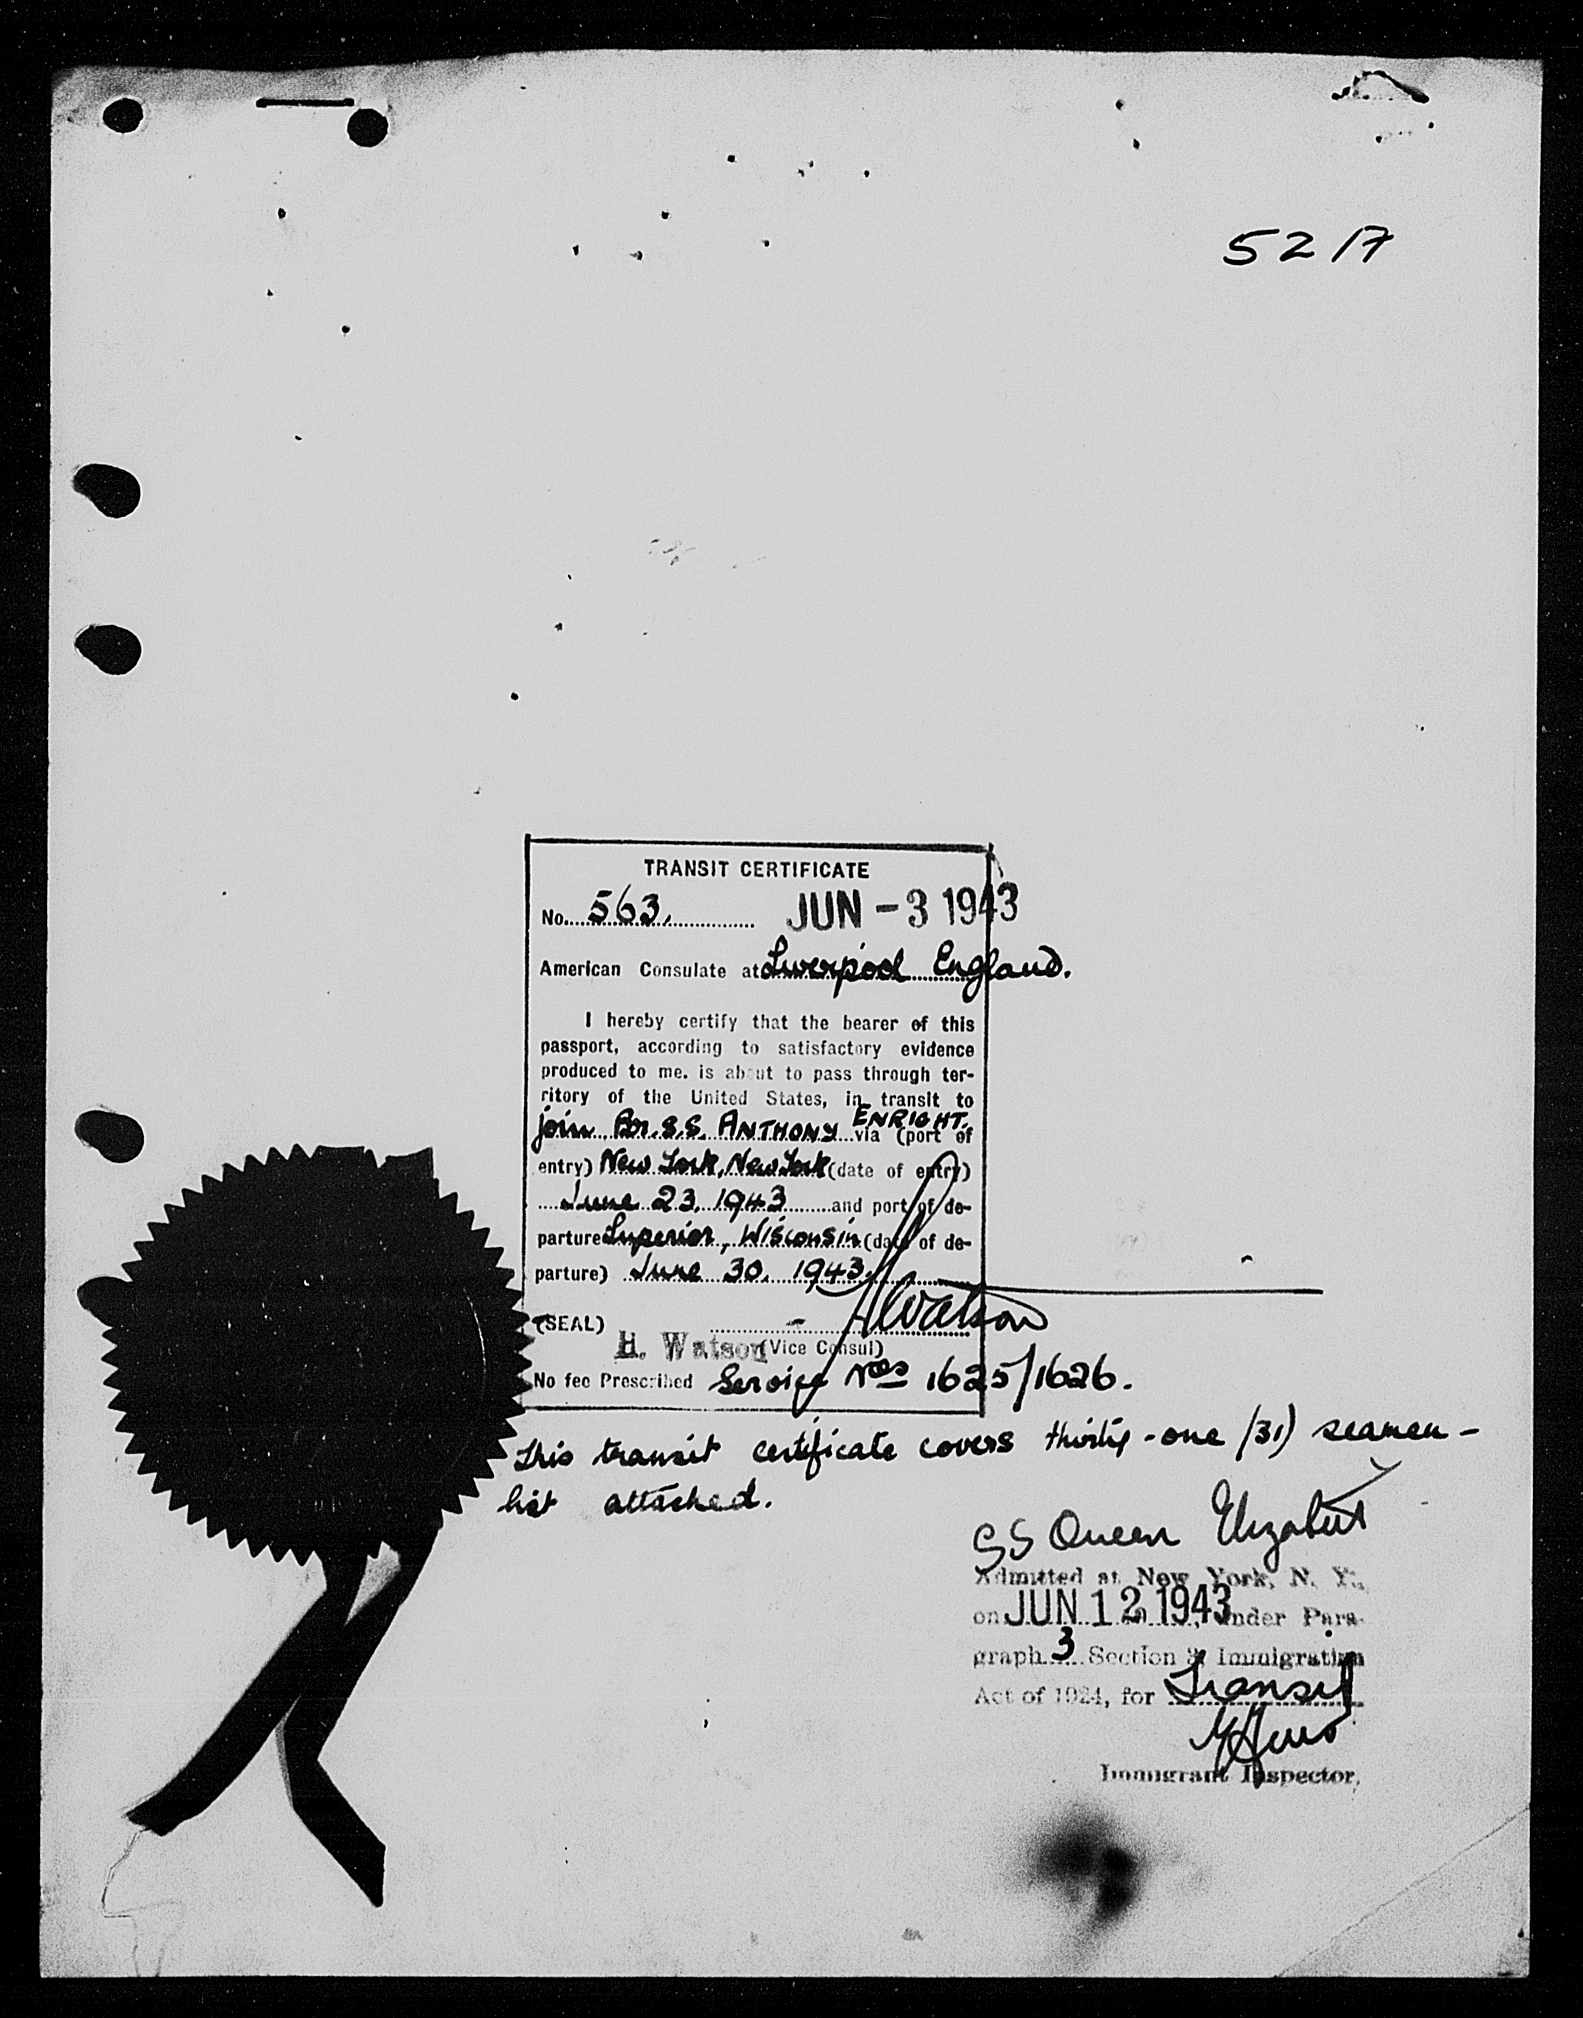 52 17
TRANSIT CERTIFICATE
No. 563. JUN - 3 1943
American Consulate at Liverpool England.
I hereby certify that the bearer of this
passport, according to satisfactory evidence
produced to me. is about to pass through ter-
ritory of the United States, in transit to
join Br. S.S. ANTHONY ENRIGHT. via (port of
entry) New York, New York (date of entry)
June 23, 1943 and port of de-
parture Superior, Wisconsin (date of de-
parture) June 30, 1943.
(SEAL) HWatson
H. Watson (Vice Consul)
No fee Prescribed Service Nos 1625/1626.
This transit certificate covers thirty-one (31) seamen -
list attached.
SS Queen Elizabeth
Admitted at New York, N. Y.,
on JUN 12 1943, under Para-
graph 3 Section 3, Immigration
Act of 1924, for Transit
Immigrant Inspector.